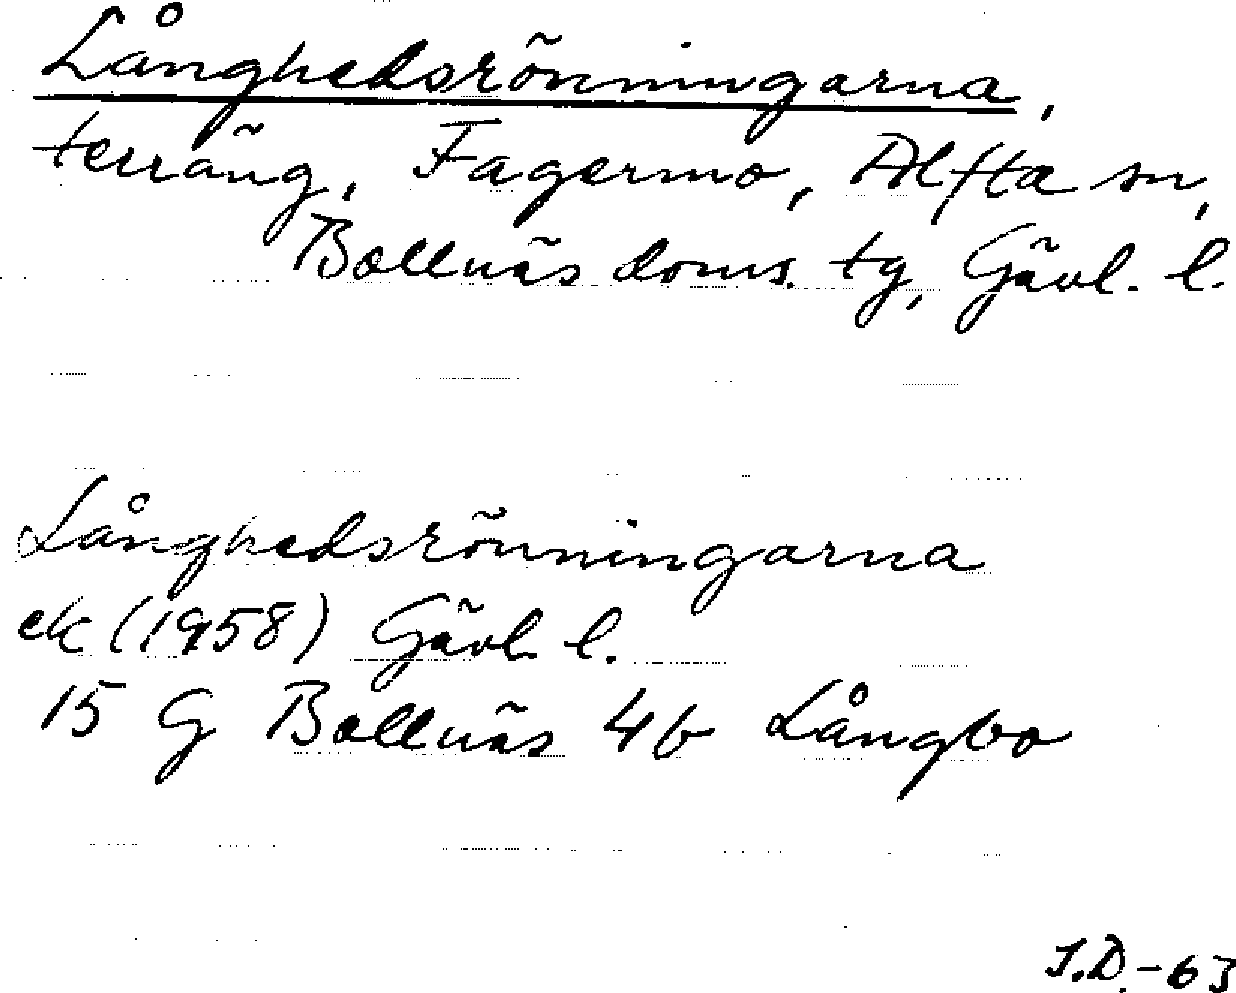 Långhedsrönningarna,
terräng, Fagermo, Alfta sn,
Bollnäs doms. tg, Gävl. l.
Långhedsrönningarna
ek (1958) Gävl. l.
15 G Bollnäs 4b Långbo
I.D.-63